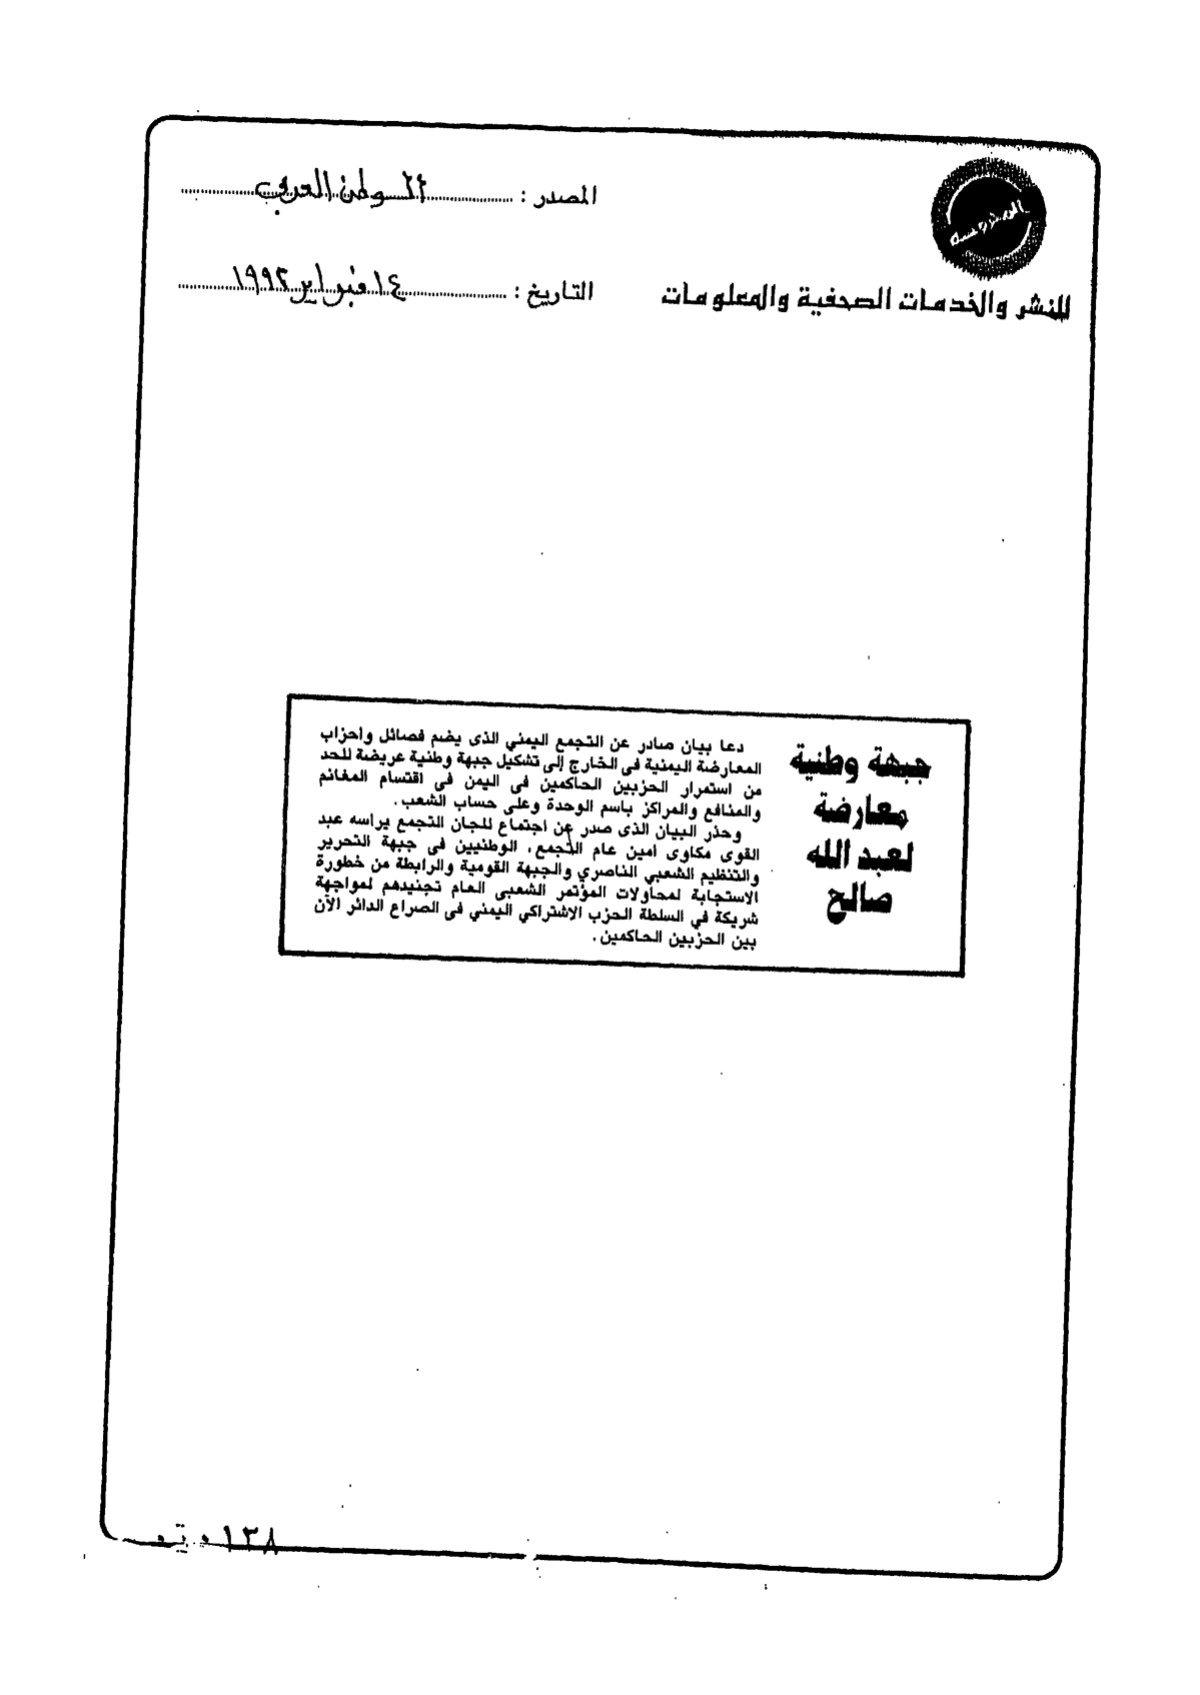 المصدر : الوطن العربي
التاريخ : ١٤ فبراير ١٩٩٢
للنشر والخدمات الصحفية والمعلومات
جبهة وطنية
معارضة
لعبد الله
صالح
دعا بيان صادر عن التجمع اليمني الذى يضم فصائل واحزاب
المعارضة اليمنية فى الخارج إلى تشكيل جبهة وطنية عريضة للحد
من استمرار الحزبين الحاكمين فى اليمن فى اقتسام المغانم
والمنافع والمراكز باسم الوحدة وعلى حساب الشعب.
وحذر البيان الذى صدر عن اجتماع للجان التجمع يراسه عبد
القوى مكاوى امين عام التجمع، الوطنيين فى جبهة التحرير
والتنظيم الشعبي الناصري والجبهة القومية والرابطة من خطورة
الاستجابة لمحاولات المؤتمر الشعبى العام تجنيدهم لمواجهة
شريكة في السلطة الحزب الاشتراكي اليمني فى الصراع الدائر الآن
بين الحزبين الحاكمين.
١٣٨